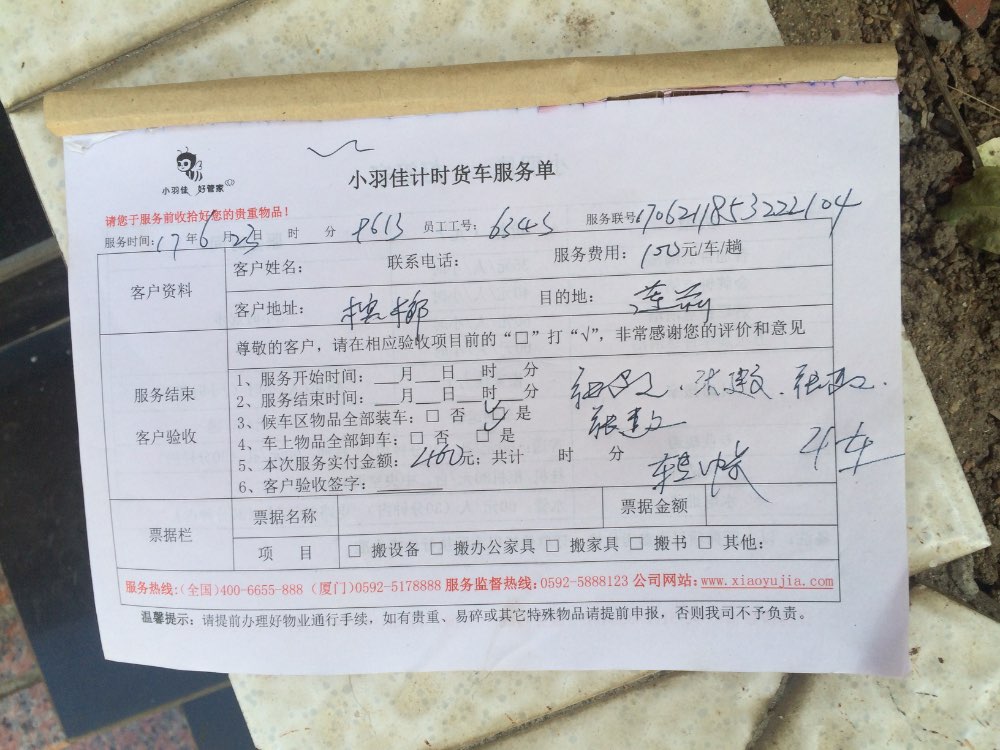 小羽佳 好管家
小羽佳计时货车服务单
请您于服务前收拾好您的贵重物品！
服务时间：17年6月23日 时 分 员工工号：6343 服务联号
客户资料
客户姓名： 联系电话： 服务费用：150元/车/趟
客户地址：槟榔 目的地：莲前
服务结束
客户验收
尊敬的客户，请在相应验收项目前的“□”打“√”，非常感谢您的评价和意见
1、服务开始时间：__月__日__时__分
2、服务结束时间：__月__日__时__分
3、候车区物品全部装车：□ 否 □ 是
4、车上物品全部卸车：□ 否 □ 是
5、本次服务实付金额：460元；共计 时 分
6、客户验收签字：
票据栏
票据名称 票据金额
项 目 □ 搬设备 □ 搬办公家具 □ 搬家具 □ 搬书 □ 其他：
服务热线：（全国）400-6655-888 （厦门）0592-5178888 服务监督热线：0592-5888123 公司网站：www.xiaoyujia.com
温馨提示：请提前办理好物业通行手续，如有贵重、易碎或其它特殊物品请提前申报，否则我司不予负责。